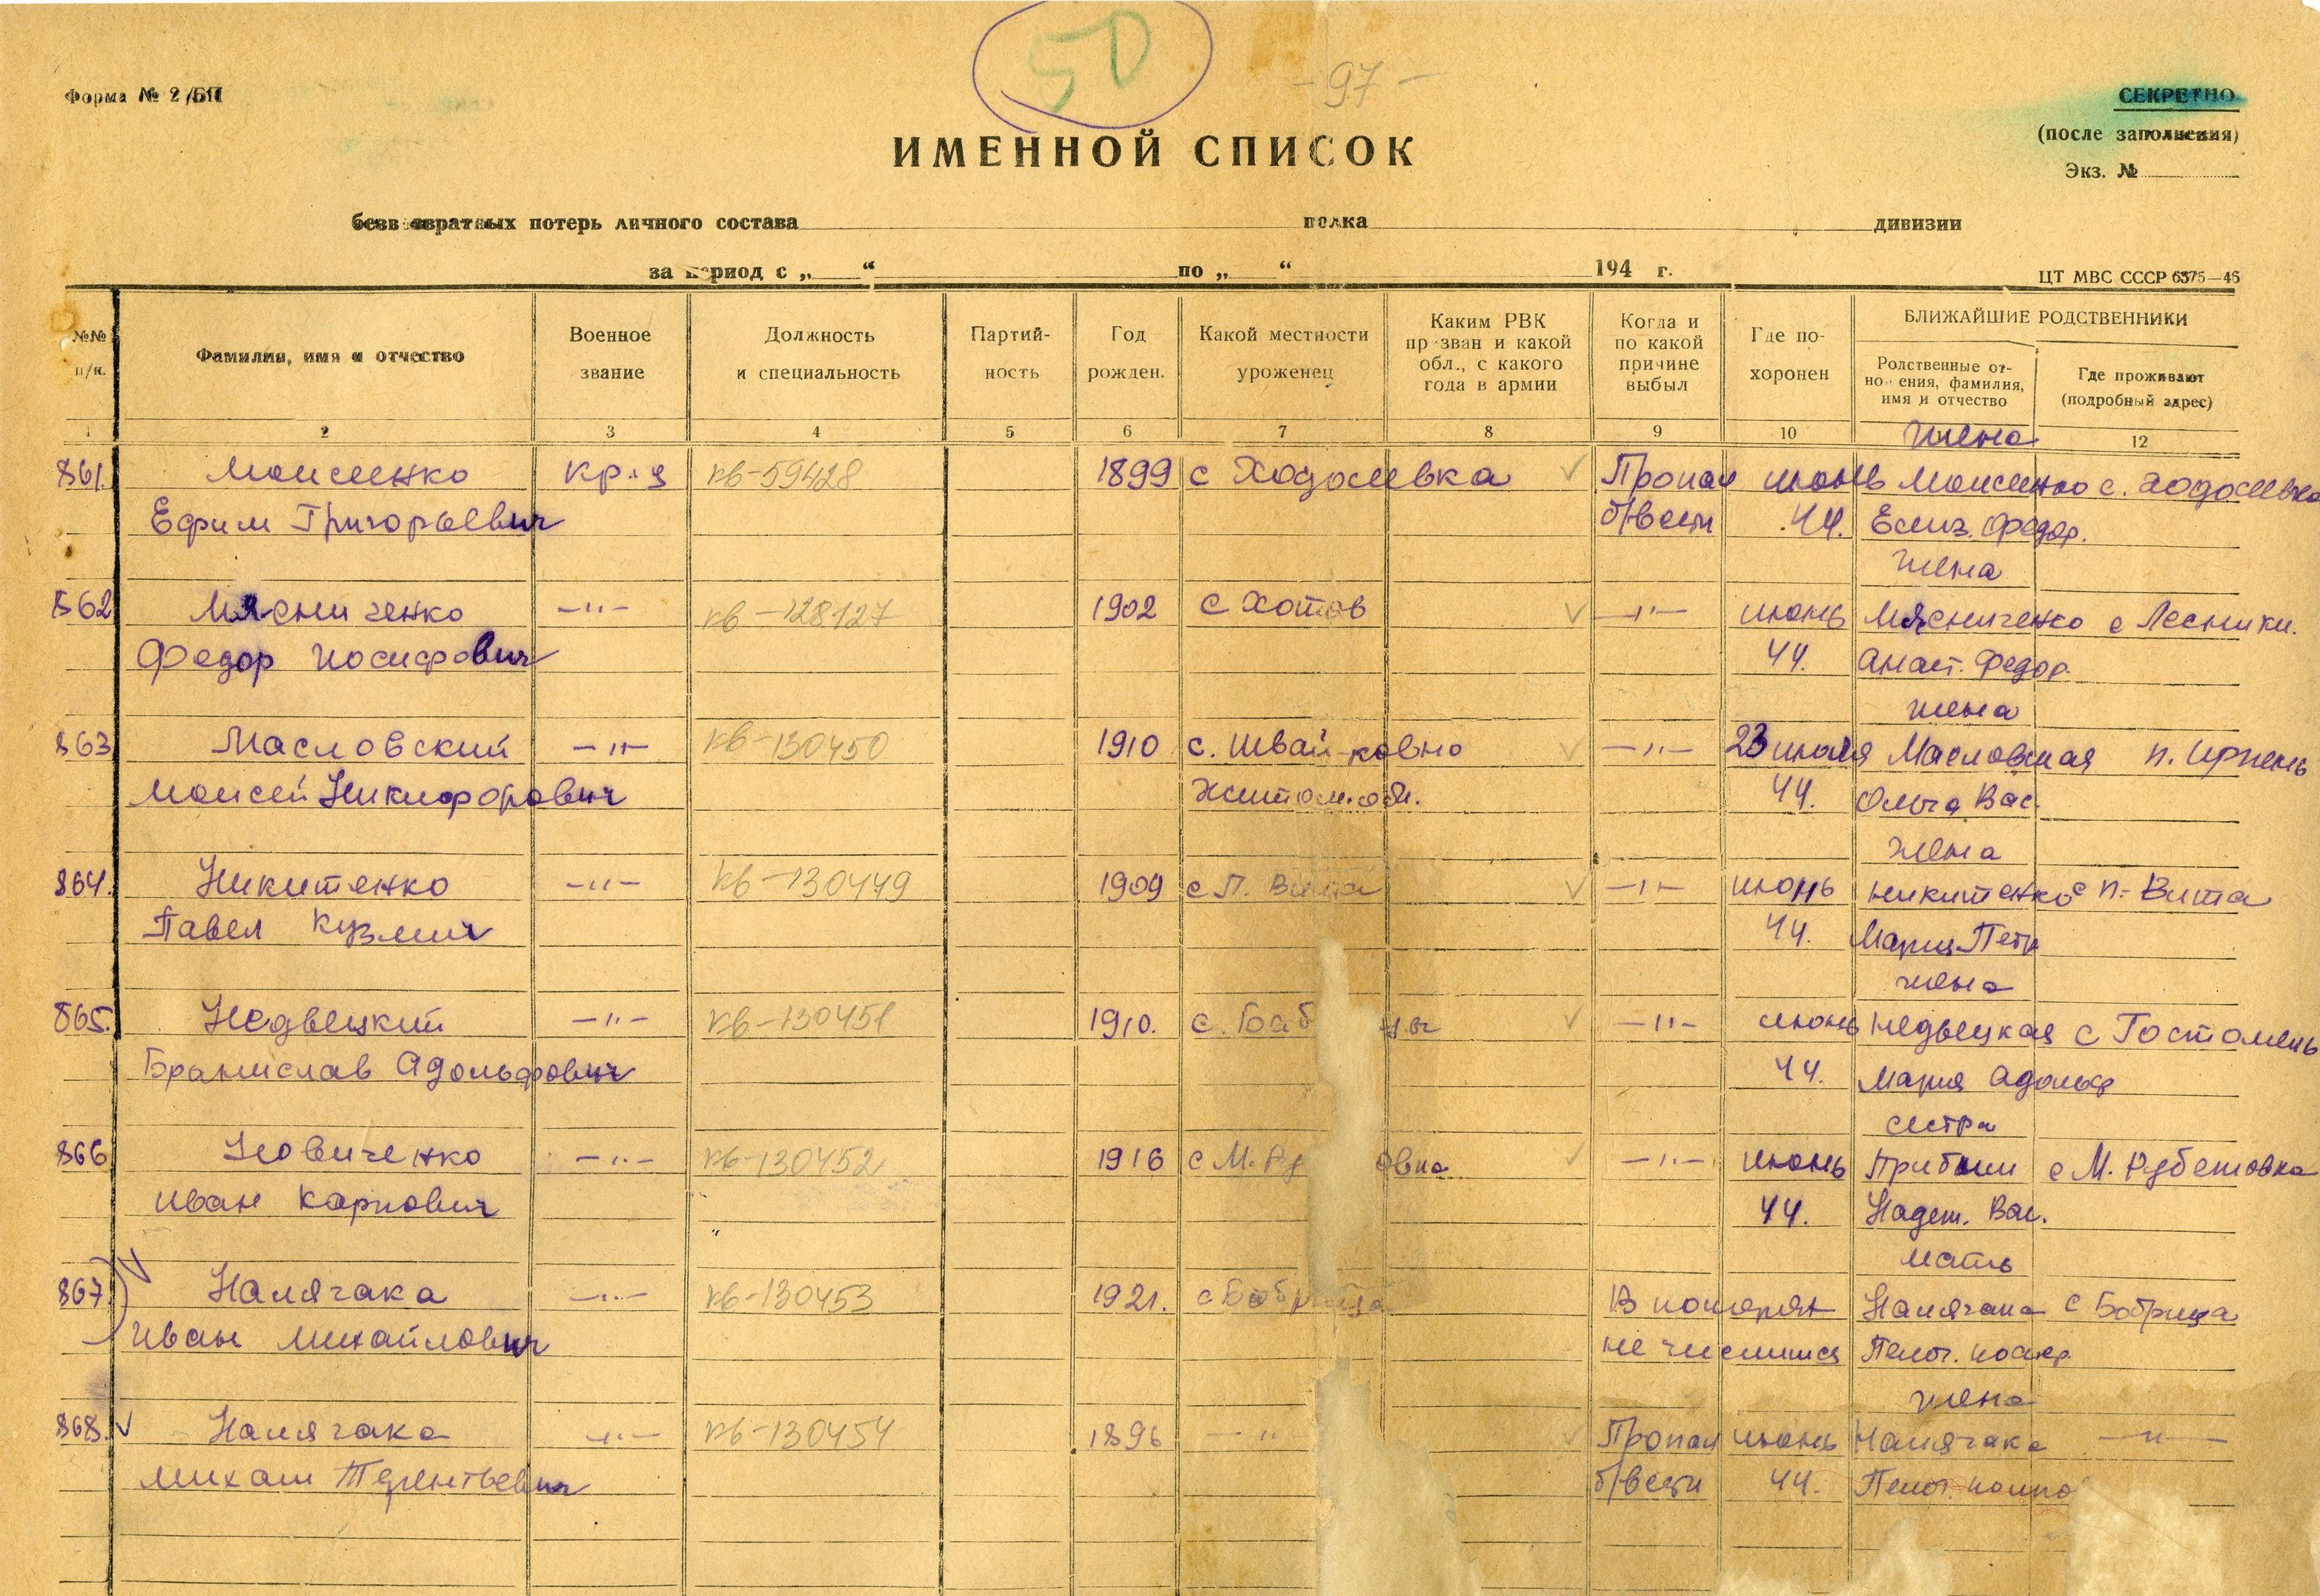 50
- 97 -
Форма № 2/БП
СЕКРЕТНО
(после заполнения)
Экз. №
ИМЕННОЙ СПИСОК
безвозвратных потерь личного состава полка дивизии
за период с „ “ по „ “ 194 г.
ЦТ МВС СССР 6375—46
№№ п/п.
Фамилия, имя и отчество
Военное звание
Должность и специальность
Партий-ность
Год рожден.
Какой местности уроженец
Каким РВК призван и какой обл., с какого года в армии
Когда и по какой причине выбыл
Где по-хоронен
БЛИЖАЙШИЕ РОДСТВЕННИКИ
Родственные от-ношения, фамилия, имя и отчество
Где проживают (подробный адрес)
1 2 3 4 5 6 7 8 9 10 12
жена
861. Моисеенко кр-ц кв-59428 1899 с Ходосевка Пропал июнь Моисеенко с. Ходосевка
Ефим Григорьевич б/вести 44. Елиз. Федор.
жена
862 Мясниченко —"— кв-128127 1902 с Хотов —"— июнь Мясниченко с Лесники.
Федор Иосифович 44. Анаст. Федор.
жена
863 Масловский —"— кв-130450 1910 с. Швайковно —"— 23 июля Масловская п. Ирпень
Моисей Никифорович Житом. обл. 44. Ольга Вас.
жена
864. Никитенко —"— кв-130449 1909 с П. Вита —"— июнь Никитенко с П-Вита
Павел Кузмич 44. Мария Петр
жена
865. Недвецкий —"— кв-130451 1910. с. —"— июнь Недвецкая с Гостомель
Бранислав Адольфович 44. Мария Адольф
сестра
866 Новиченко —"— кв-130452 1916 с М. Ру овка —"— июнь с М. Рубежовка
Иван Карпович 44. Надеж. Вас.
мать
867 Намячака —"— кв-130453 1921. с Бобрица В потерях Намячака с Бобрица
Иван Михайлович не числится Пелаг.
жена
868. Намячака —"— кв-130454 1896 —"— Пропал июнь Намячака —"—
Михаил Терентьевич б/вести 44. Пелаг.